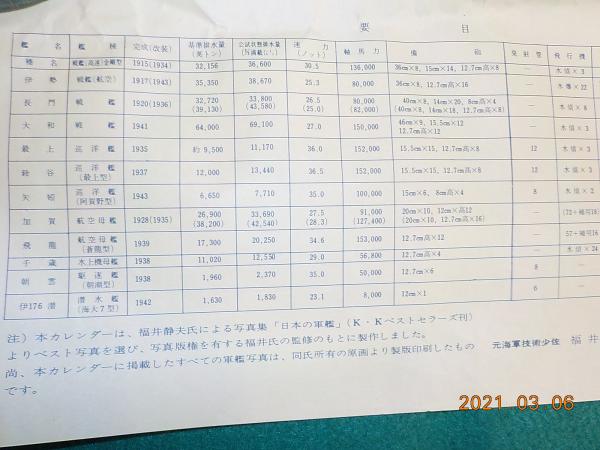 要 目
艦 名 艦 種 完成(改装) 基準排水量(英トン) 公試状態排水量 速 力(ノット) 軸馬力 備 砲 発射管 飛行機
榛名 戦艦(高速)金剛型 1915(1934) 32,156 36,600 30.5 136,000 36cm×8, 15cm×14, 12.7cm高×8 — 水偵×3
伊勢 戦艦(航空) 1917(1943) 35,350 38,670 25.3 80,000 36cm×8, 12.7cm高×16 — 水爆×22
長門 戦艦 1920(1936) 32,720 33,800 26.5 80,000 40cm×8, 14cm×20, 8cm高×4 — 水偵×3
(39,130) (43,580) (25.0) (82,000) (40cm×8, 14cm×18, 12.7cm高×8)
大和 戦艦 1941 64,000 69,100 27.0 150,000 46cm×9, 15.5cm×12 —
12.7cm高×12
最上 巡洋艦 1935 約9,500 11,170 36.0 152,000 15.5cm×15, 12.7cm高×8 12 水偵×3
鈴谷 巡洋艦(最上型) 1937 12,000 13,440 36.5 152,000 15.5cm×15, 12.7cm高×8 12 水偵×3
矢矧 巡洋艦(阿賀野型) 1943 6,650 7,710 35.0 100,000 15cm×6, 8cm高×4 8 水偵×2
加賀 航空母艦 1928(1935) 26,900 33,690 27.5 91,000 20cm×10, 12cm高12 — (72+補用18
(38,200) (42,540) (28.3) (127,400) (20cm×10, 12.7cm高×16)
飛龍 航空母艦(蒼龍型) 1939 17,300 20,250 34.6 153,000 12.7cm高×12 — 57+補用16
千歳 水上機母艦 1938 11,020 12,550 29.0 56,800 12.7cm高×4 — 水偵×24
朝雲 駆逐艦(朝潮型) 1938 1,960 2,370 35.0 50,000 12.7cm×6 8 —
伊176潜 潜水艦(海大7型) 1942 1,630 1,830 23.1 8,000 12cm×1 6 —
注)本カレンダーは、福井静夫氏による写真集「日本の軍艦」(K・Kベストセラーズ刊)
よりベスト写真を選び、写真版権を有する福井氏の監修のもとに製作しました。
尚、本カレンダーに掲載したすべての軍艦写真は、同氏所有の原画より製版印刷したもの
です。
元海軍技術少佐 福井
2021 03 06